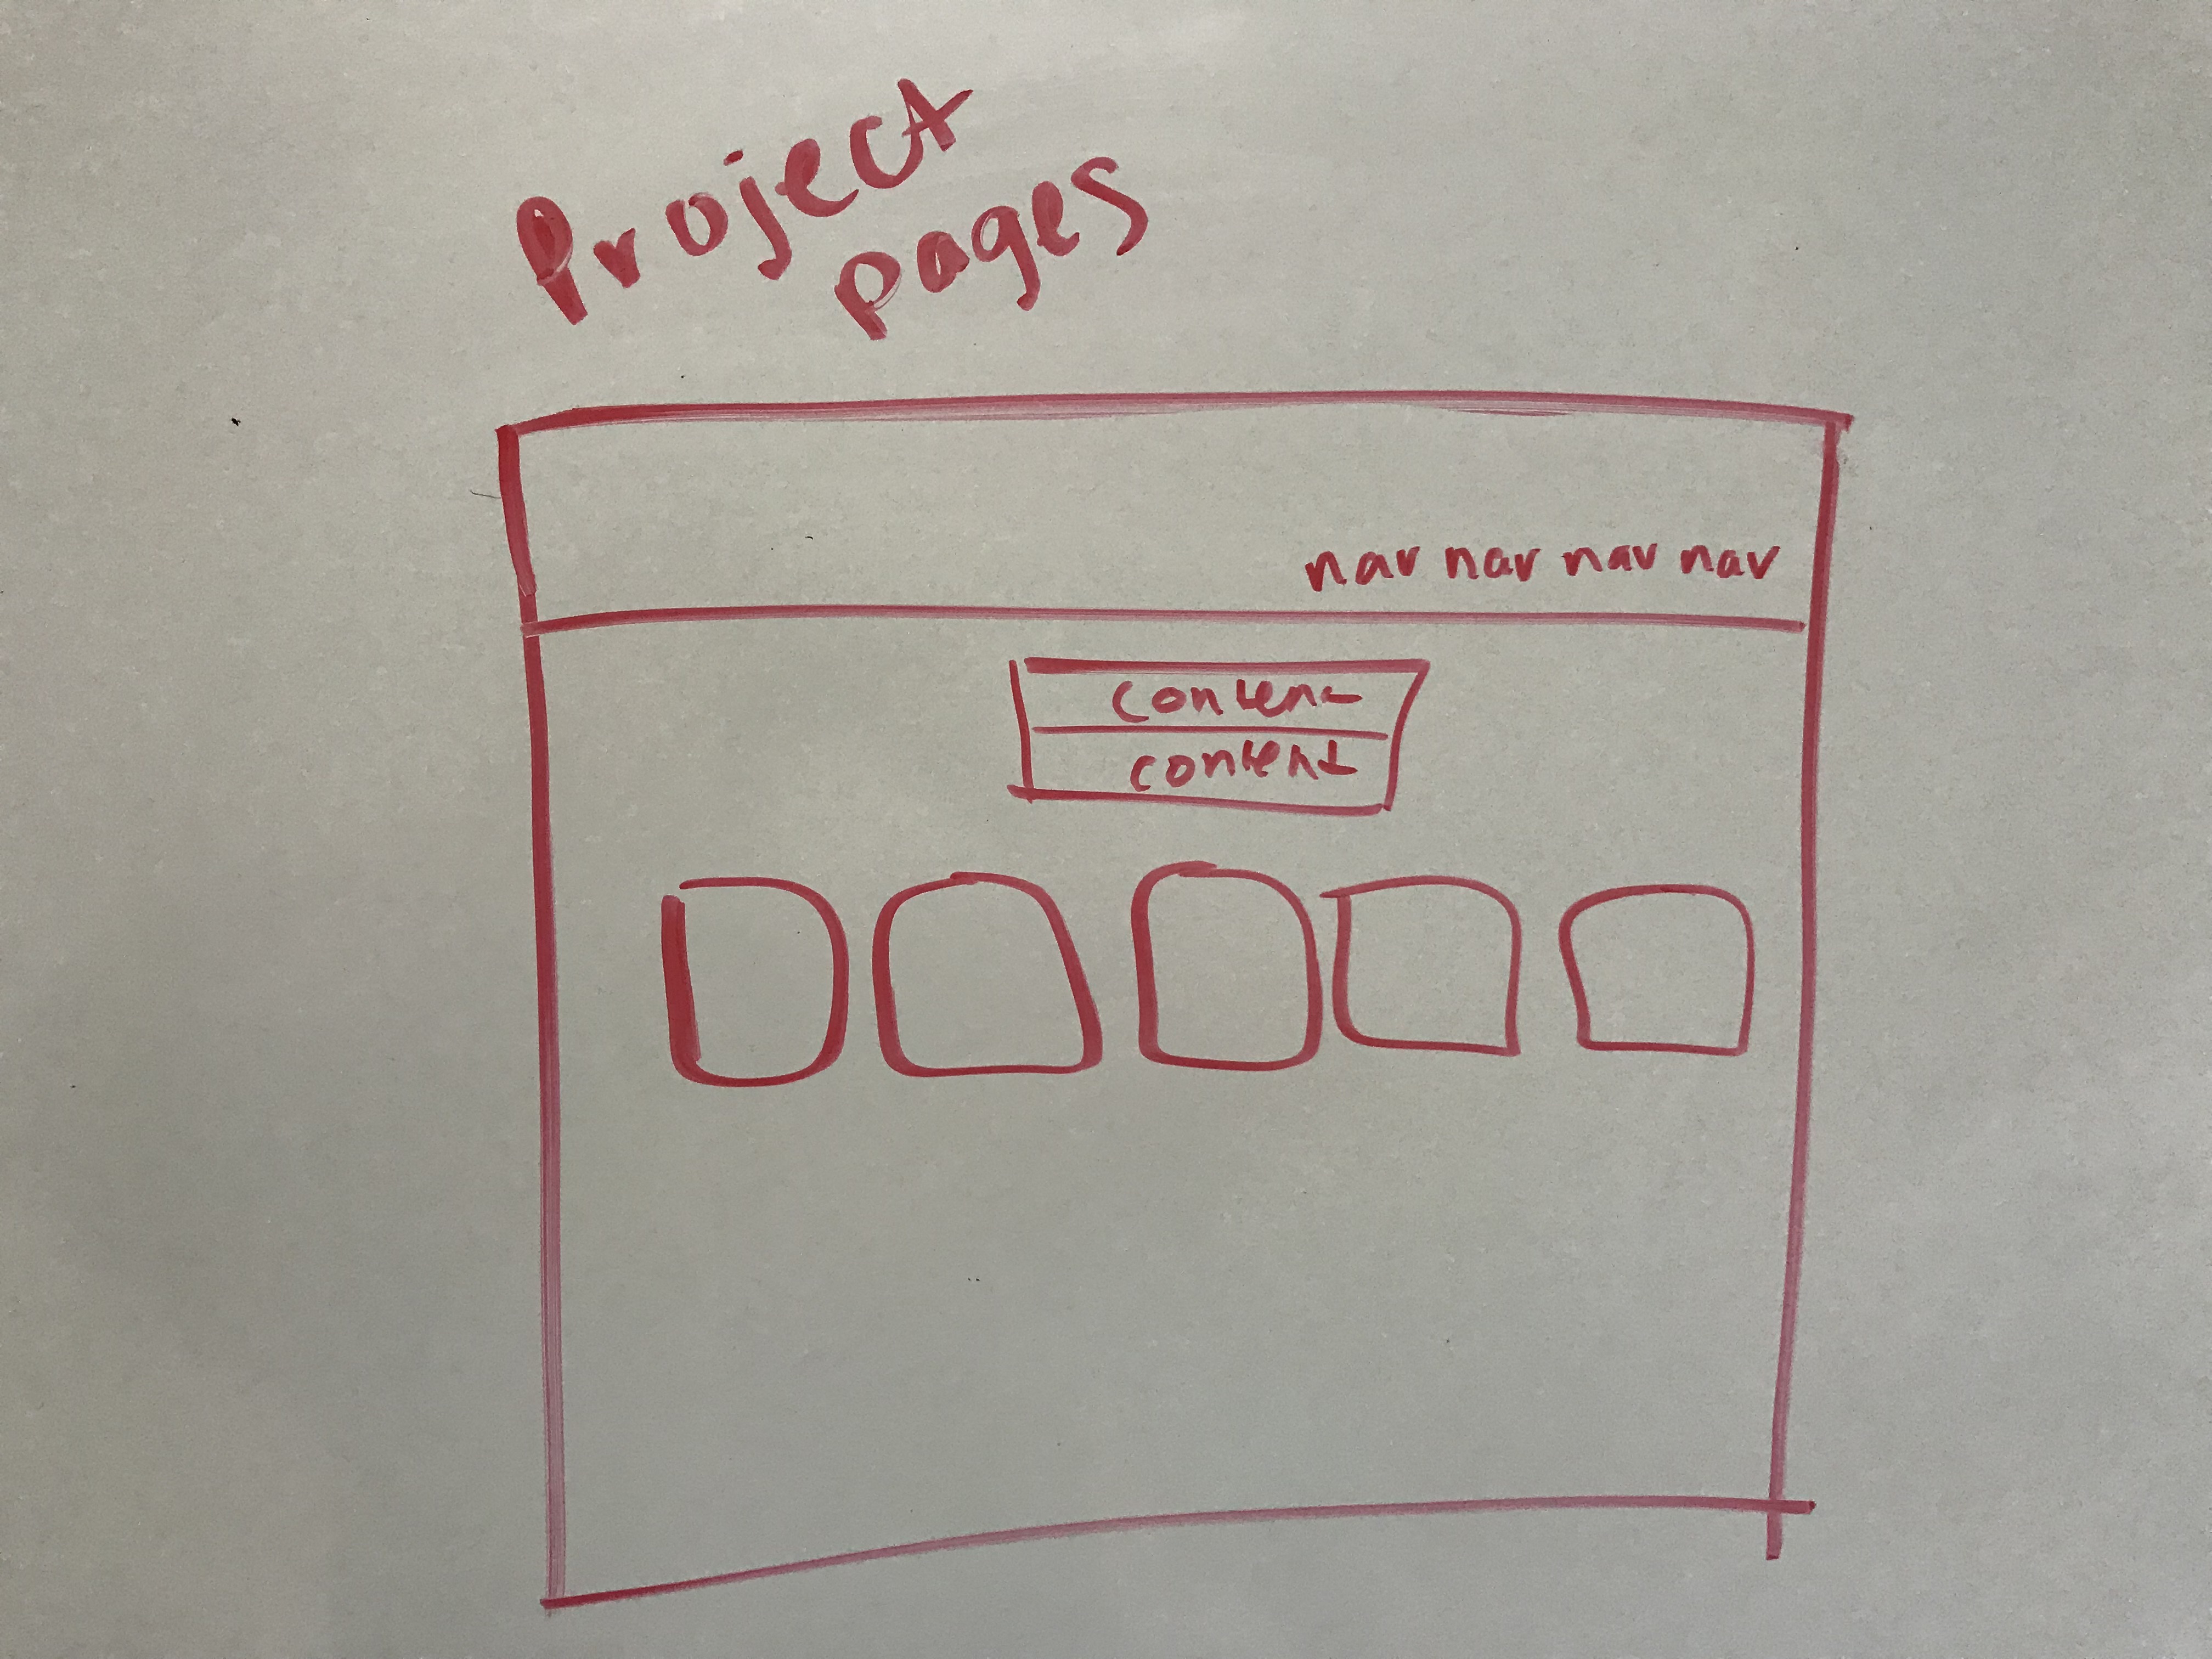 Project
pages
nav nav nav nav
content
content